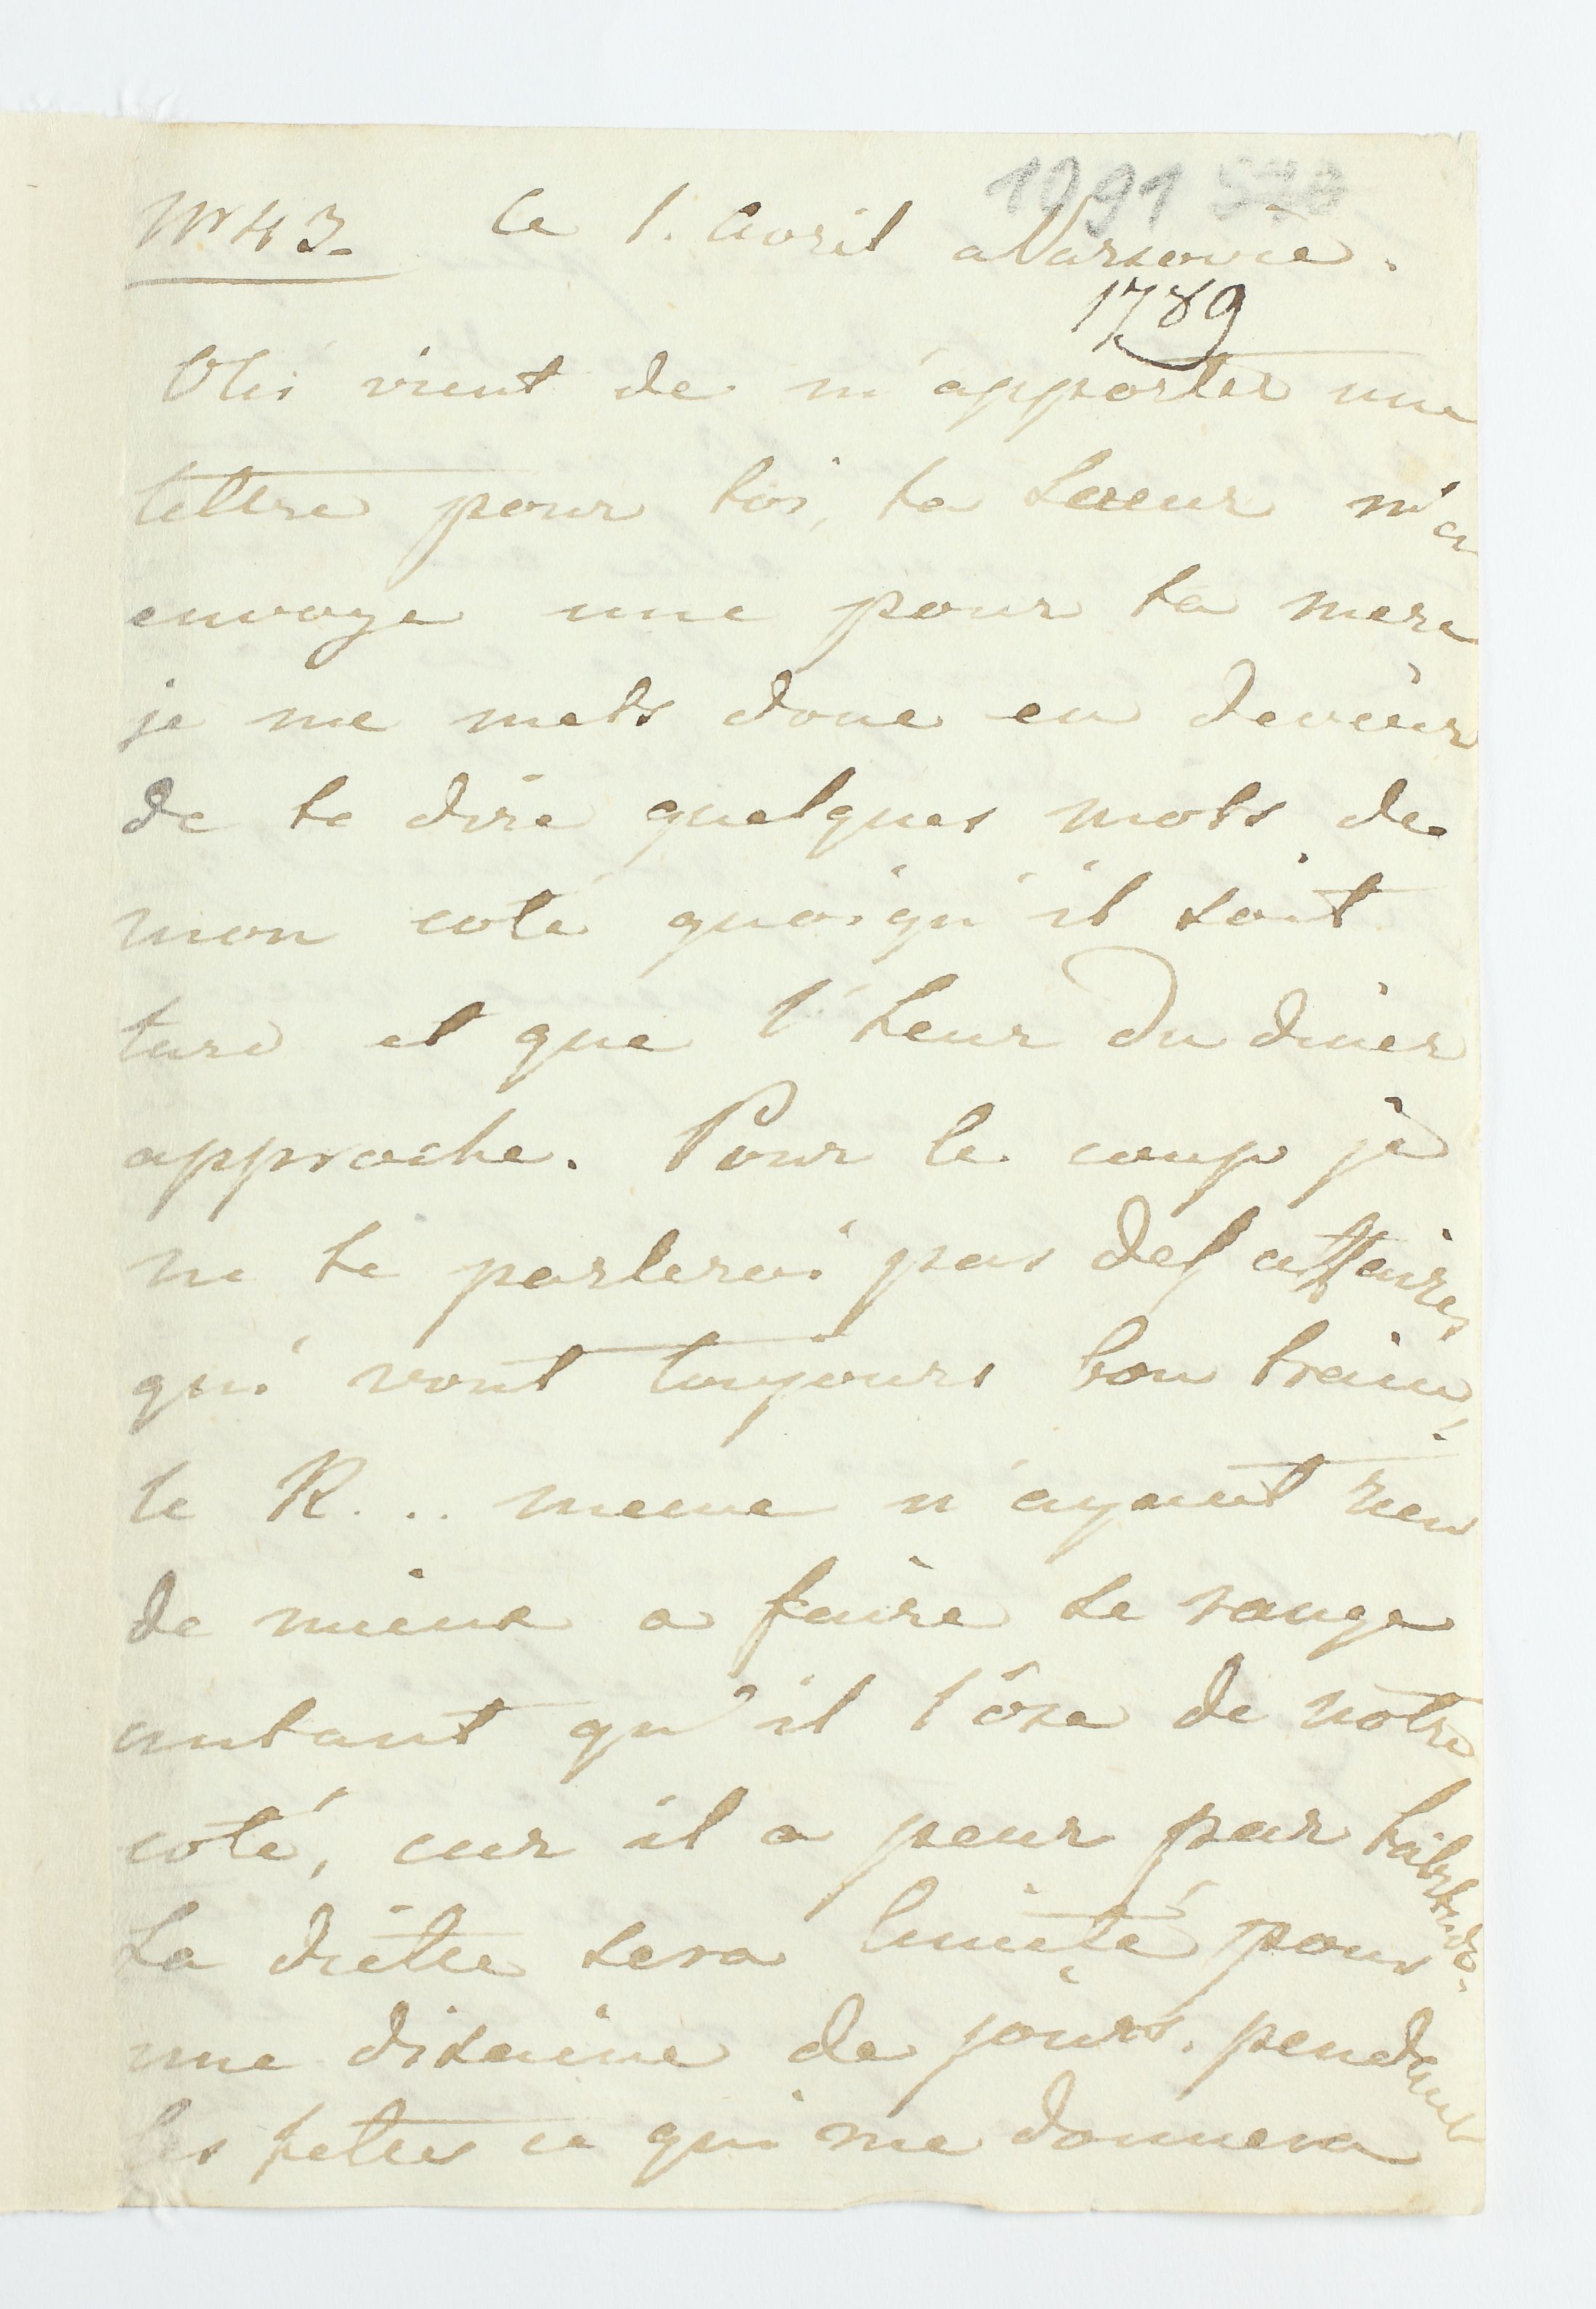 1091
Nr 43. Ce 1. Avril a Varsovie.
1789
Oli vient de m'apporter une
lettre pour toi, ta soeur m'a
envoye une pour ta mere
je me mets donc en devoir
de te dire quelques mots de
mon coté quoiqu'il soit
tard et que l'heur du diner
approche. Pour le coup je
ne te parlerai pas des affaires
qui vont toujours bon train,
le R... meme n'ayant rien
de mieux a faire se range
autant qu'il l'ôse de notre
coté, car il a peur par habitude.
La diette sera limité pour
une disaine de jours. pendant
les fetes ce qui me donnera